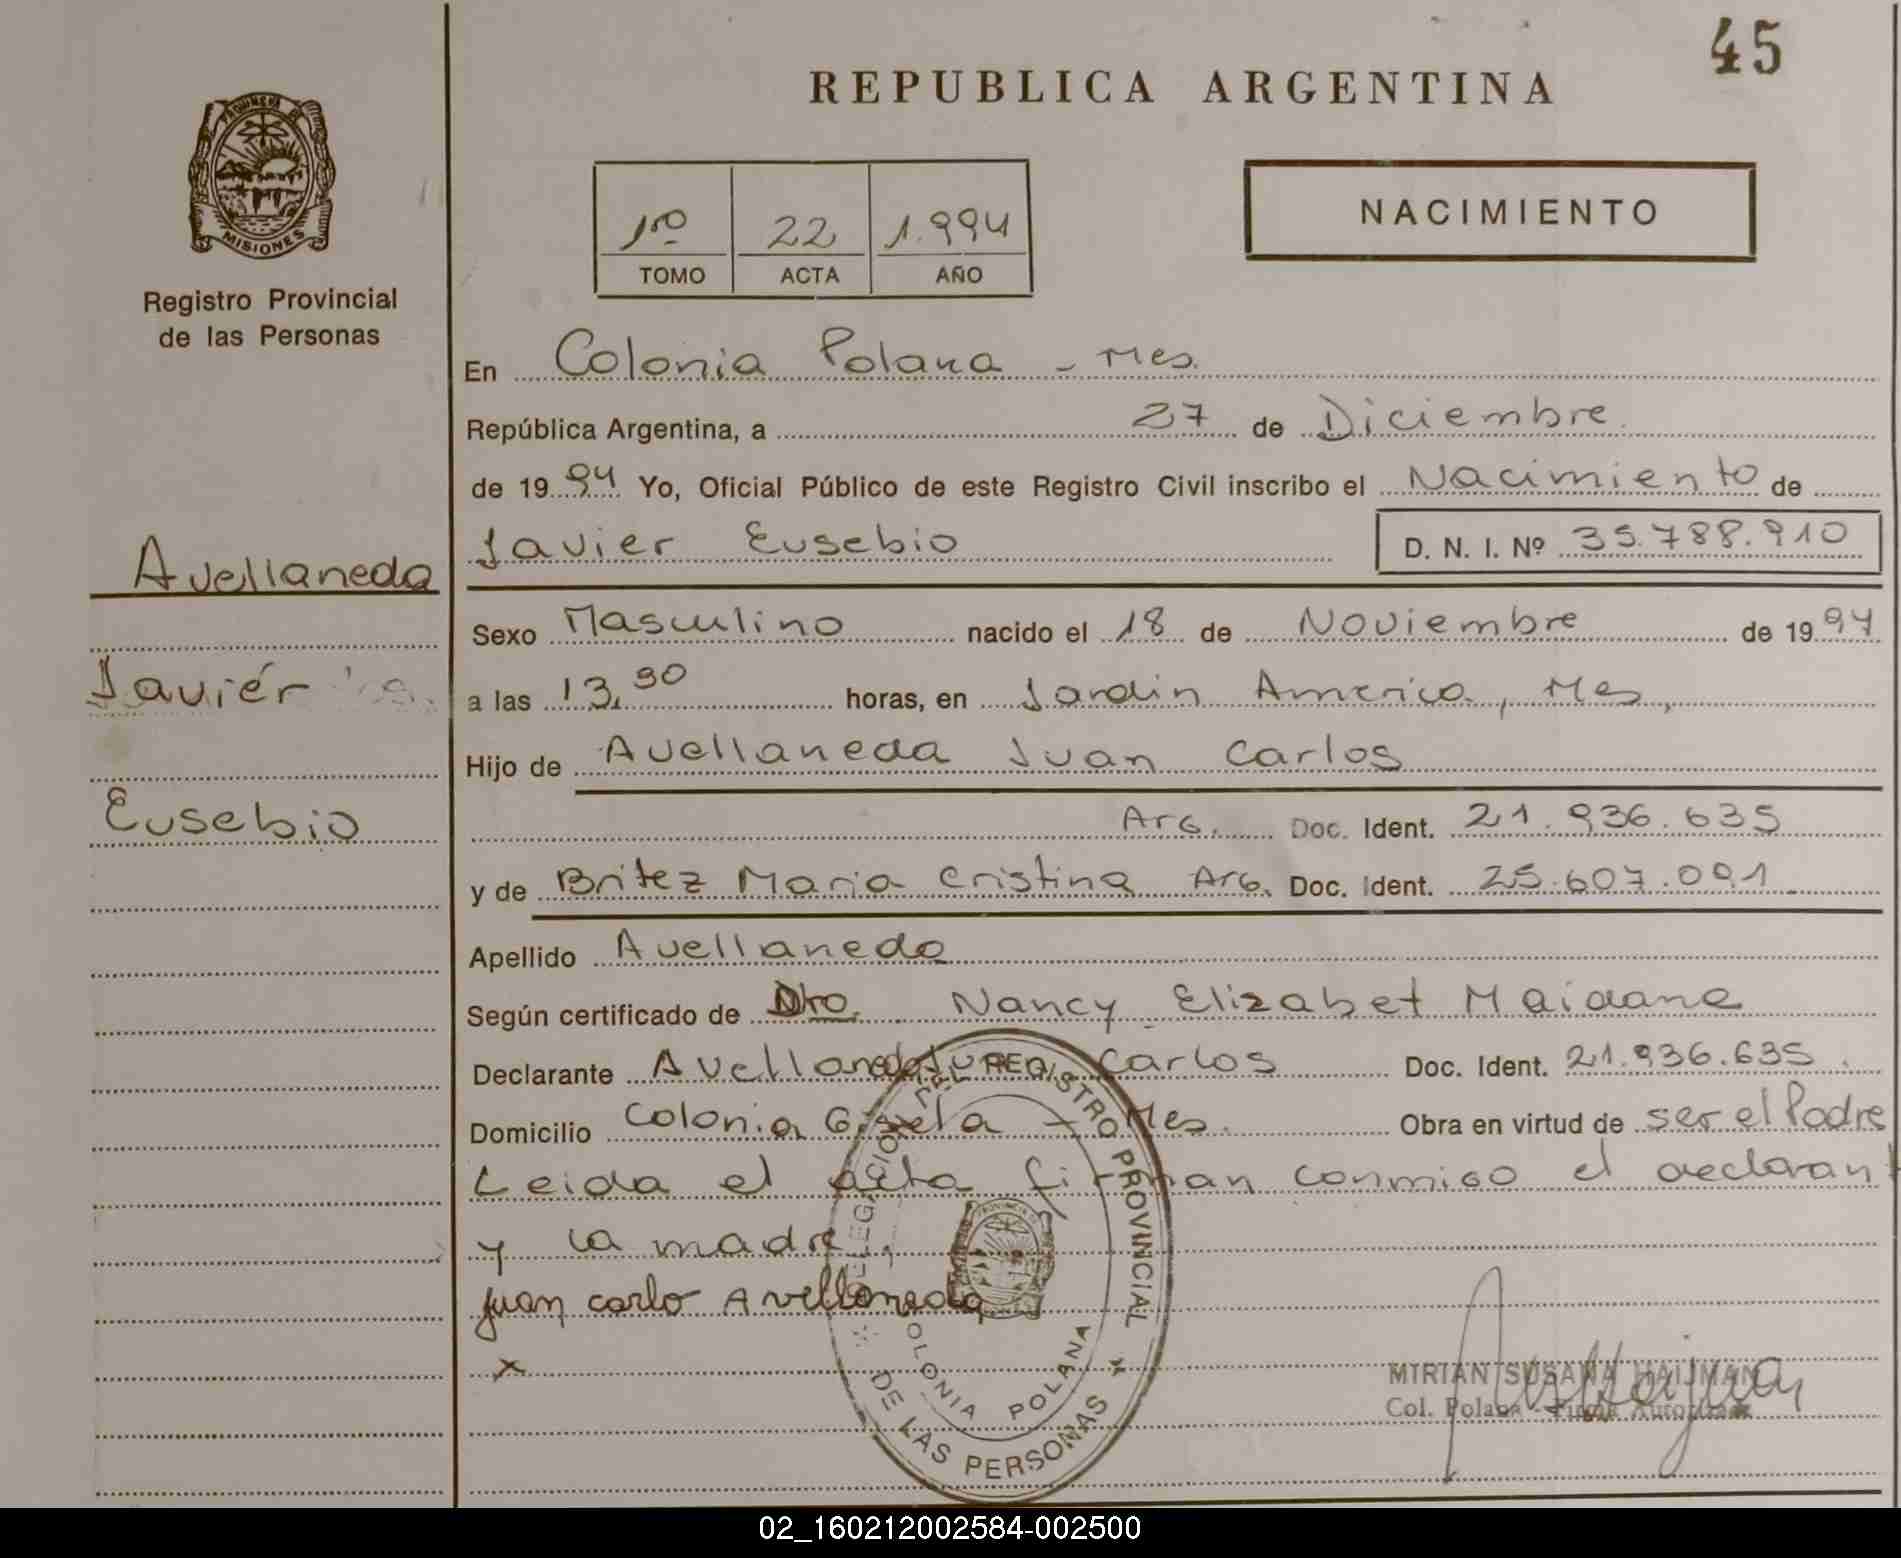 45
REPUBLICA ARGENTINA
PROVINCIA DE
MISIONES
Registro Provincial
de las Personas
1ro 22 1.994
TOMO ACTA AÑO
NACIMIENTO
En Colonia Polana - Mes.
República Argentina, a 27 de Diciembre
de 1994 Yo, Oficial Público de este Registro Civil inscribo el Nacimiento de
Javier Eusebio D. N. I. Nº 35.788.910
Avellaneda
Javiér
Eusebio
Sexo Masculino nacido el 18 de Noviembre de 1994
a las 13,30 horas, en Jardin America, Mes,
Hijo de Avellaneda Juan Carlos
Arg. Doc. Ident. 21.936.635
y de Britez Maria Cristina Arg. Doc. Ident. 25.607.091
Apellido Avellaneda
Según certificado de Dto. Nancy Elizabet Maidana
Declarante Avellaneda Juan Carlos Doc. Ident. 21.936.635.
Domicilio Colonia Gisela - Mes. Obra en virtud de ser el Padre
Leida el acta firman conmigo el declarant
y la madre.
Juan carlo Avellaneda
x
DELEGACION DEL REGISTRO PROVINCIAL
DE LAS PERSONAS
COLONIA POLANA
MIRIAN SUSANA HAIJMAN
Col. Polana - Firma Autorizada
02_160212002584-002500